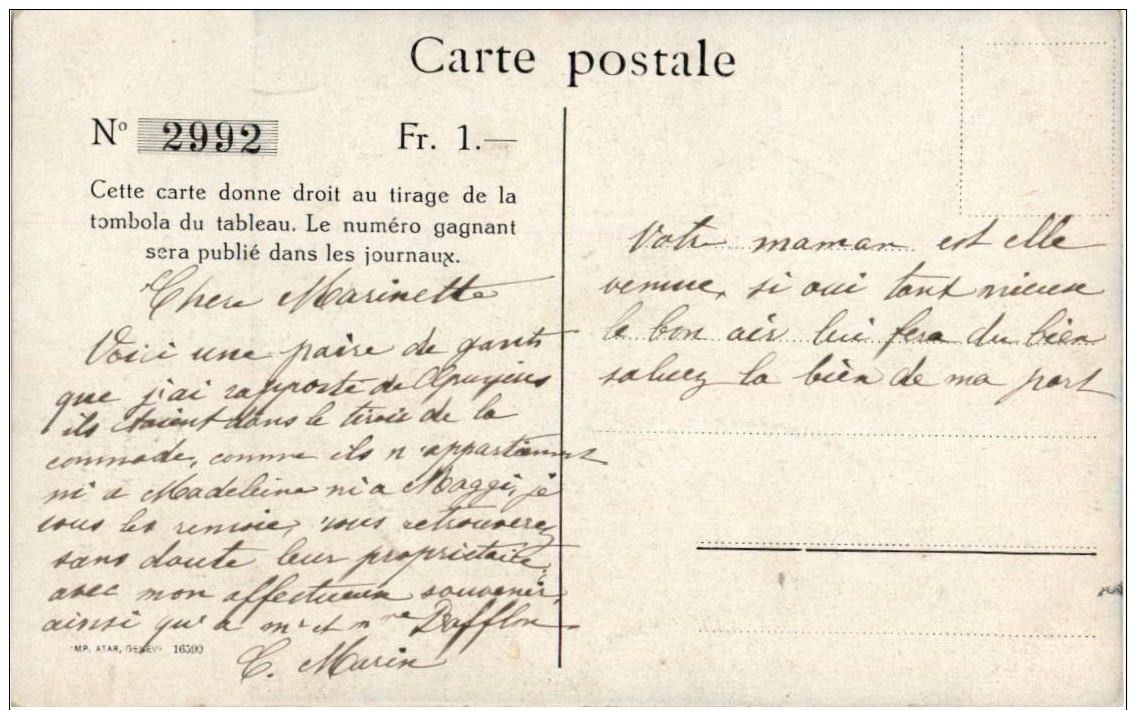 Carte postale
Nº 2992 Fr. 1.—
Cette carte donne droit au tirage de la
tombola du tableau. Le numéro gagnant
sera publié dans les journaux.
Chere Marinette
Voici une paire de gants
que j'ai rapporté de
ils étaient dans le tiroir de la
commode, comme ils n'appartiennent
ni a Madeleine ni a Maggi, je
vous les renvoie, vous retrouverez
sans doute leur propriétaire,
avec mon affectueux souvenir,
ainsi qu'a mr et mme Dafflon
C. Marin
IMP. ATAR, GENÈVE 16590
Votre maman est elle
venue, si oui tant mieux
le bon air lui fera du bien
saluez la bien de ma part